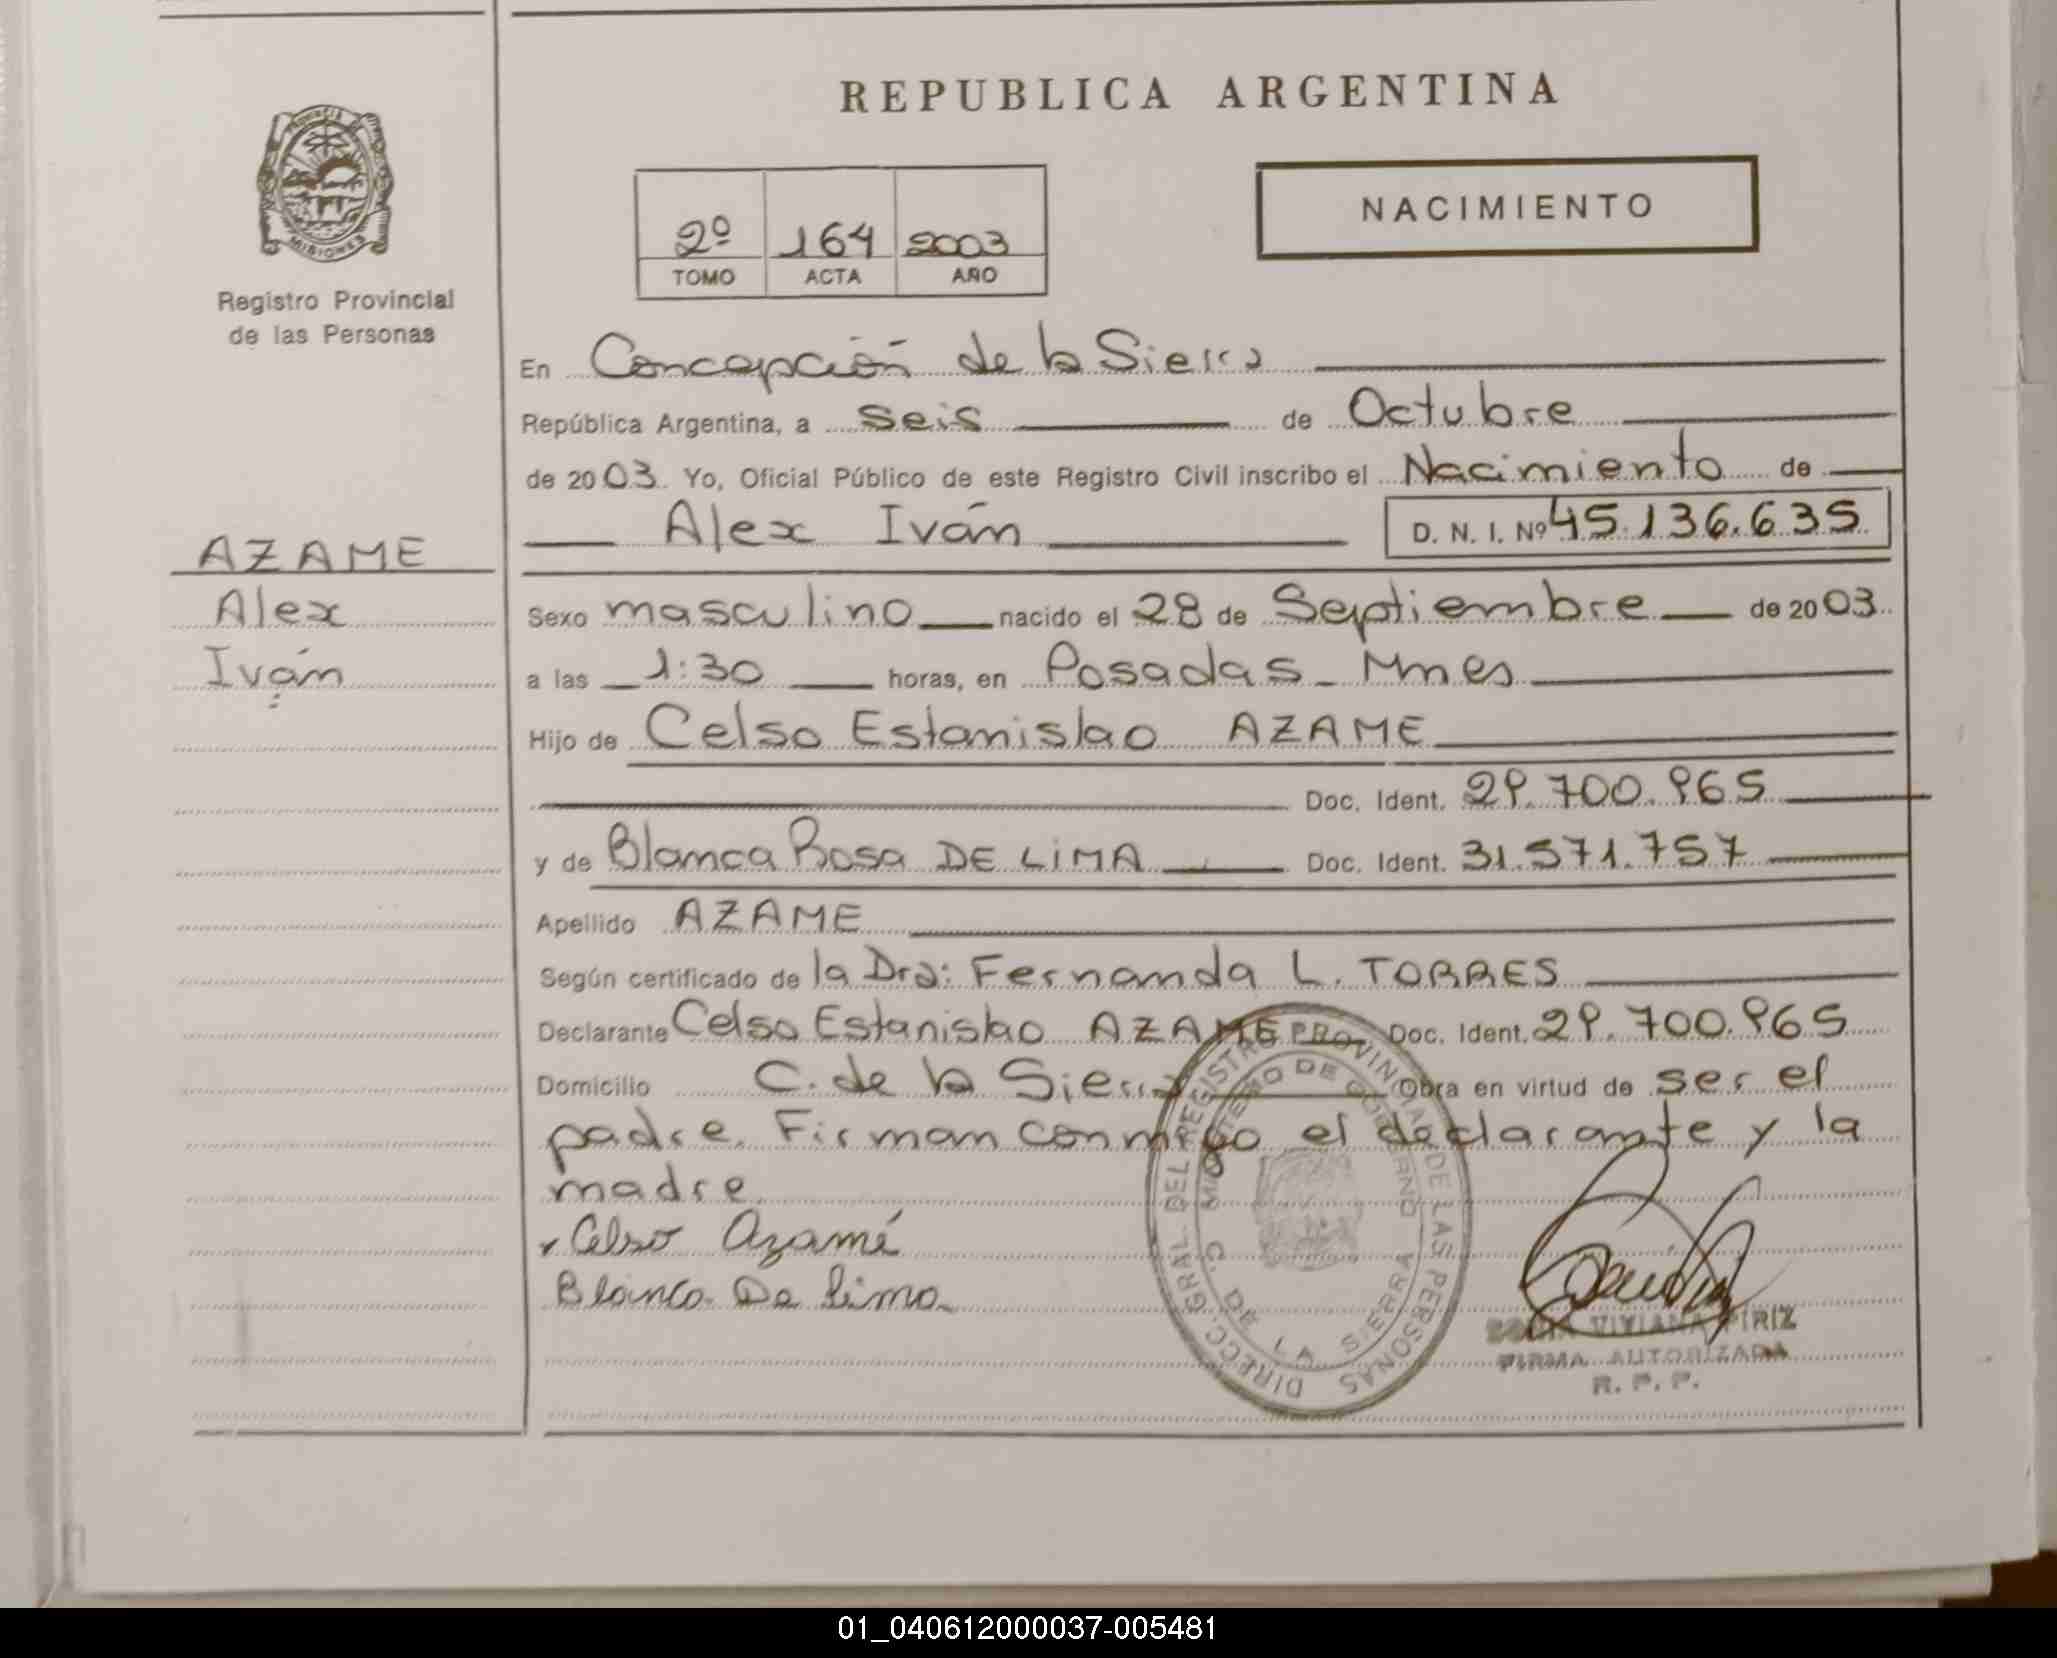 REPUBLICA ARGENTINA
PROVINCIA DE
MISIONES
Registro Provincial
de las Personas
2º 164 2003
TOMO ACTA AÑO
NACIMIENTO
En Concepción de la Sierra
República Argentina, a seis de Octubre
de 2003. Yo, Oficial Público de este Registro Civil inscribo el Nacimiento de
Alex Iván D. N. I. Nº 45.136.635
AZAME
Alex
Iván
Sexo masculino nacido el 28 de Septiembre de 2003
a las 1:30 horas, en Posadas - Mnes
Hijo de Celso Estanislao AZAME
Doc. Ident. 29.700.965
y de Blanca Rosa DE LIMA Doc. Ident. 31.571.757
Apellido AZAME
Según certificado de la Dra: Fernanda L. TORRES
Declarante Celso Estanislao AZAME Doc. Ident. 29.700.965
Domicilio C. de la Sierra Obra en virtud de ser el
padre. Firman conmigo el declarante y la
madre
Celso Azamé
Blanca De Lima
DIRECC. GRAL. DEL REGISTRO PROVINCIAL DE LAS PERSONAS
MINISTERIO DE GOBIERNO
C. DE LA SIERRA
SONIA VIVIANA PIRIZ
FIRMA AUTORIZADA
R. P. P.
01_040612000037-005481